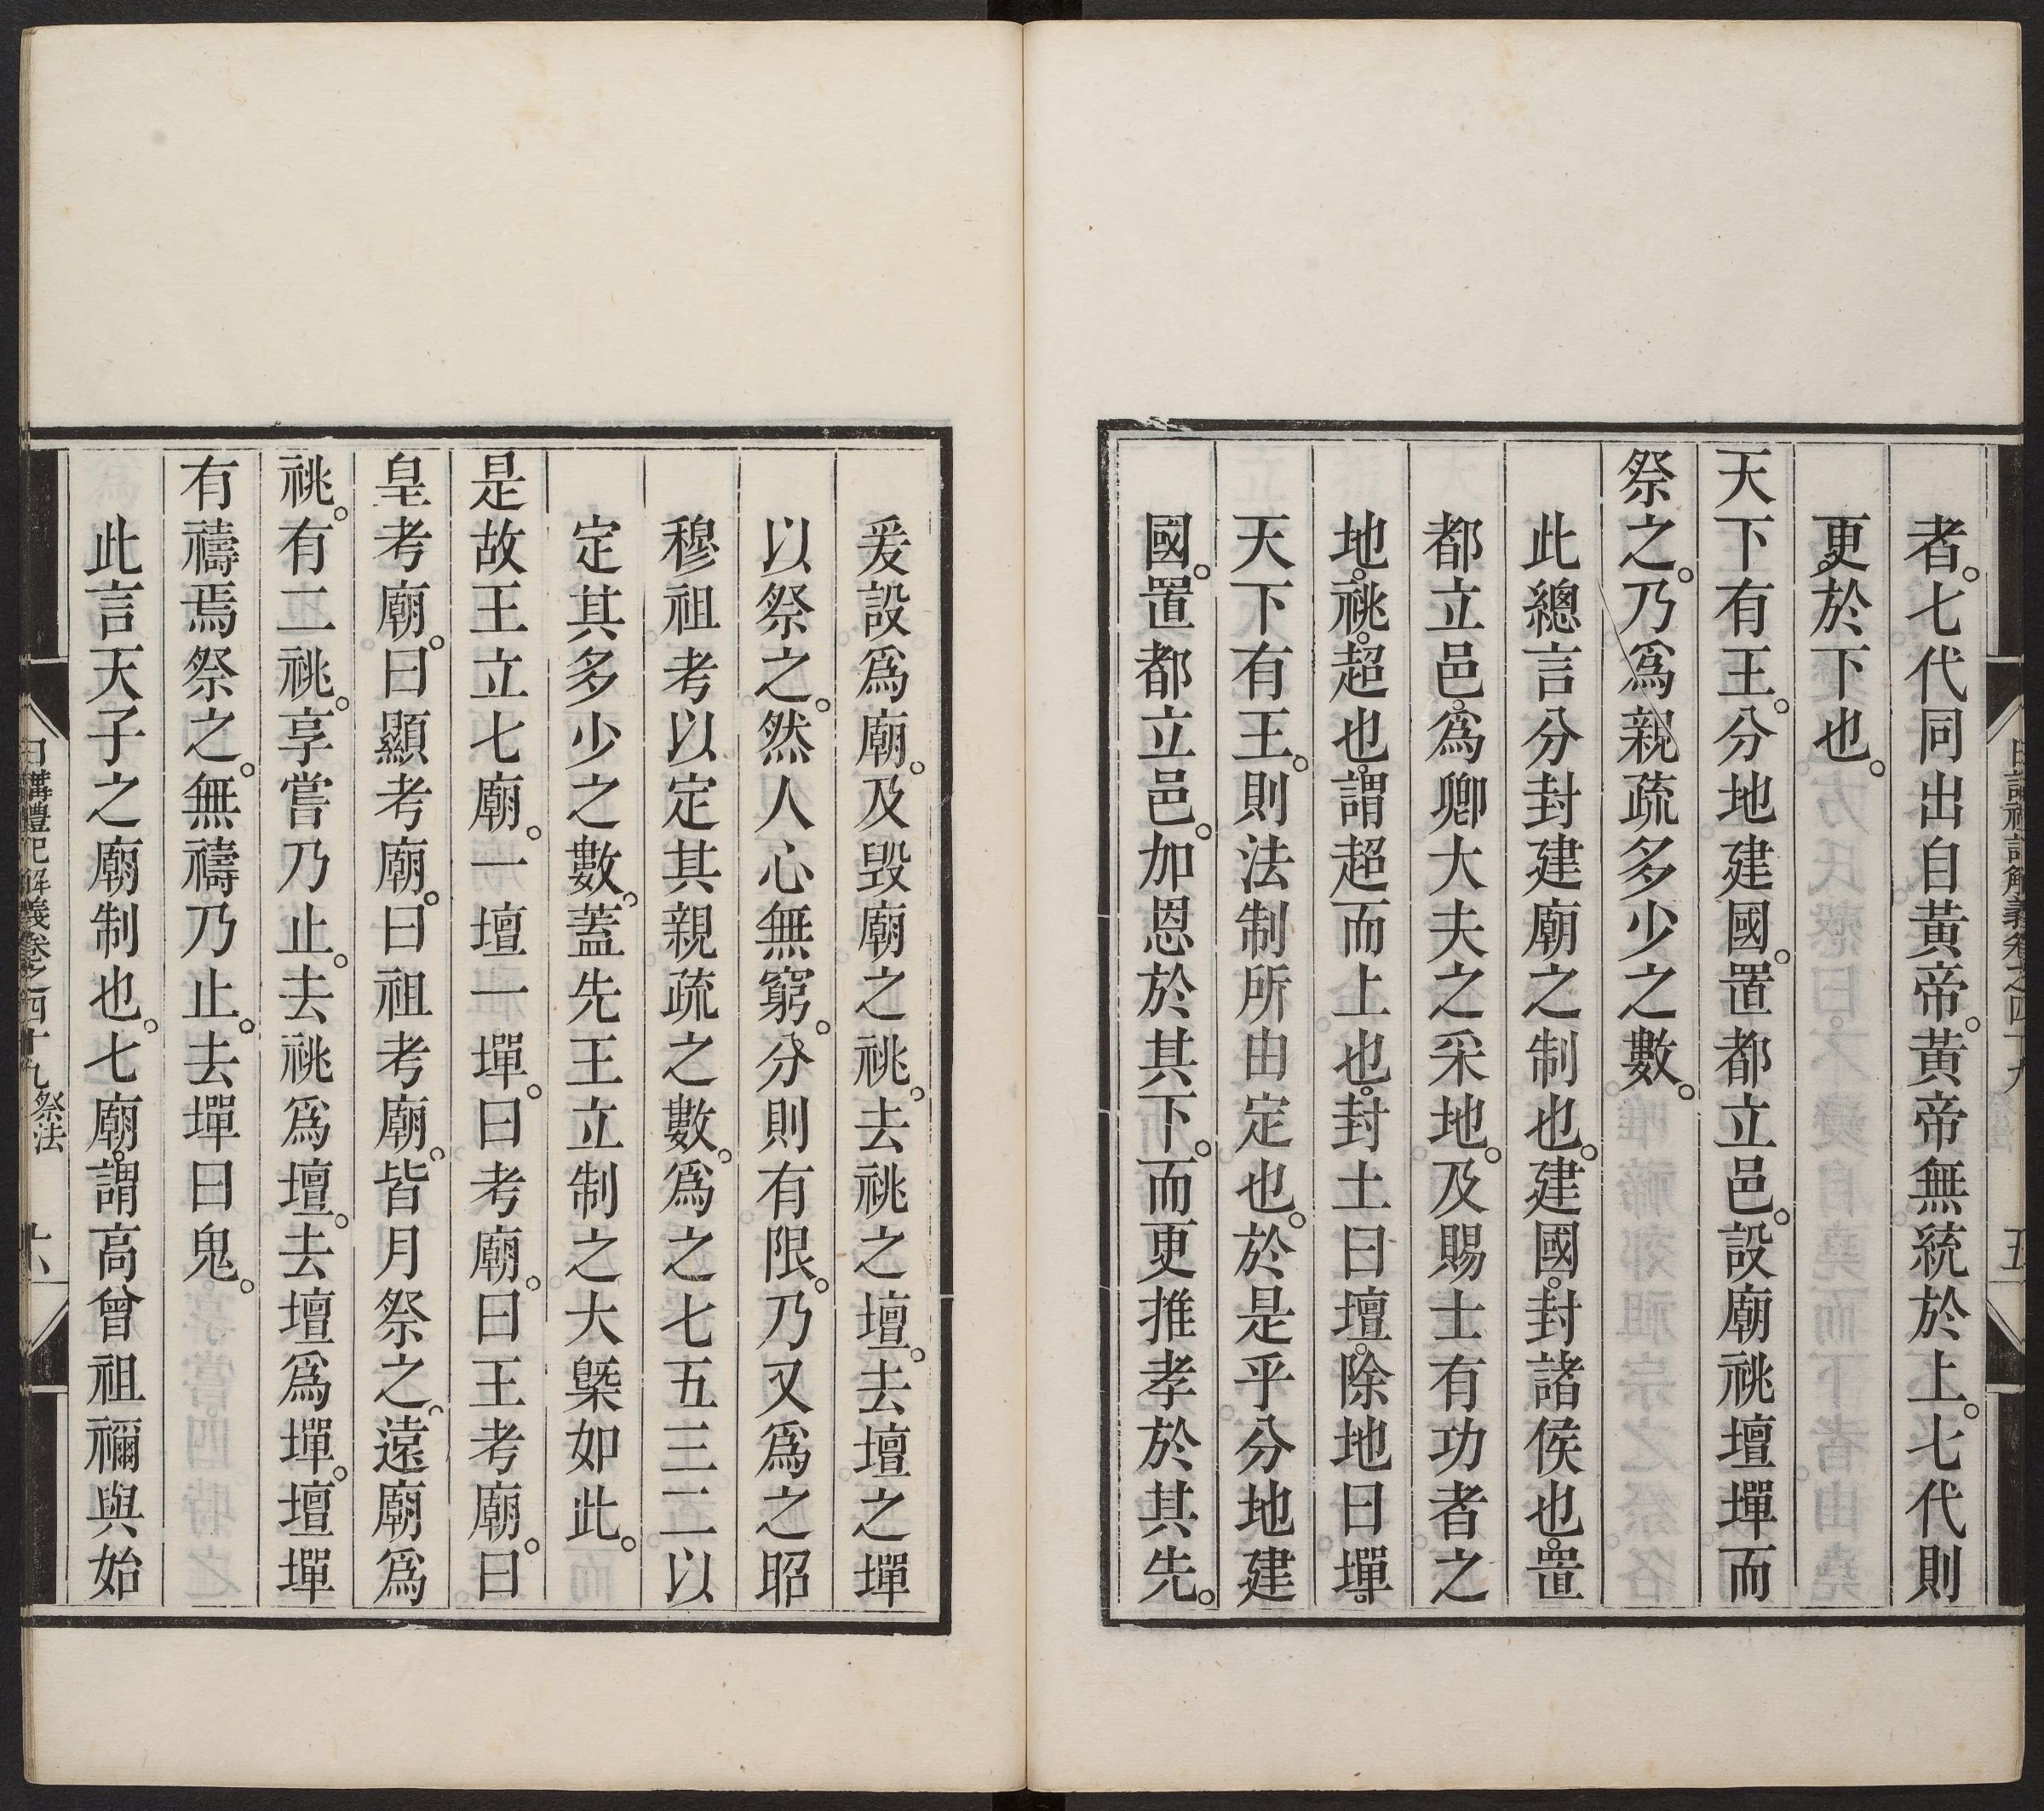 者。七代同出自黃帝。黃帝無統於上。七代則
更於下也。
天下有王。分地建國。置都立邑。設廟祧壇墠而
祭之。乃爲親疏多少之數。
此總言分封建廟之制也。建國。封諸侯也。置
都立邑。爲卿大夫之采地。及賜士有功者之
地。祧。超也。謂超而上也。封土曰壇。除地曰墠。
天下有王。則法制所由定也。於是乎分地建
國。置都立邑。加恩於其下。而更推孝於其先。
爰設爲廟。及毀廟之祧。去祧之壇。去壇之墠
以祭之。然人心無窮。分則有限。乃又爲之昭
穆祖考以定其親疏之數。爲之七五三二以
定其多少之數。蓋先王立制之大槩如此。
是故王立七廟。一壇一墠。曰考廟。曰王考廟。曰
皇考廟。曰顯考廟。曰祖考廟。皆月祭之。遠廟爲
祧。有二祧。享嘗乃止。去祧爲壇。去壇爲墠。壇墠
有禱焉祭之。無禱乃止。去墠曰鬼。
此言天子之廟制也。七廟。謂高曾祖禰與始
日講禮記解義卷之四十九 祭法 六